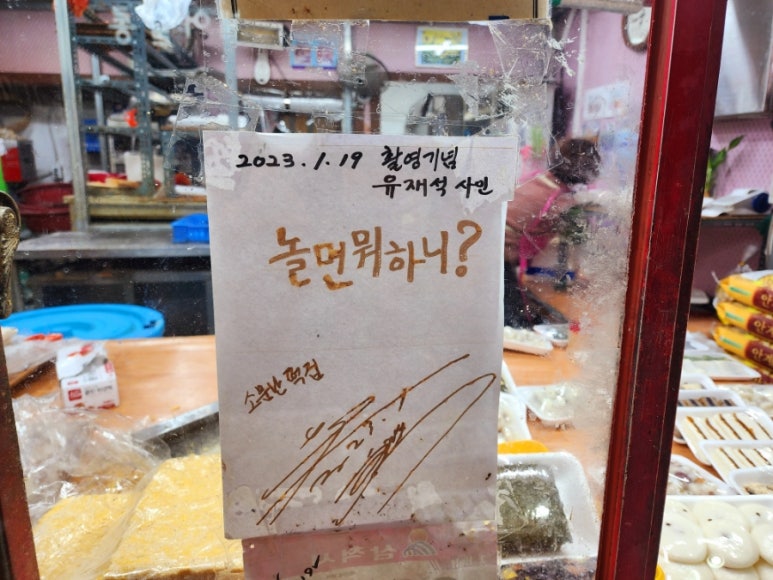 2023.1.19 촬영기념
유재석 사인
놀면뭐하니?
소문난 떡집